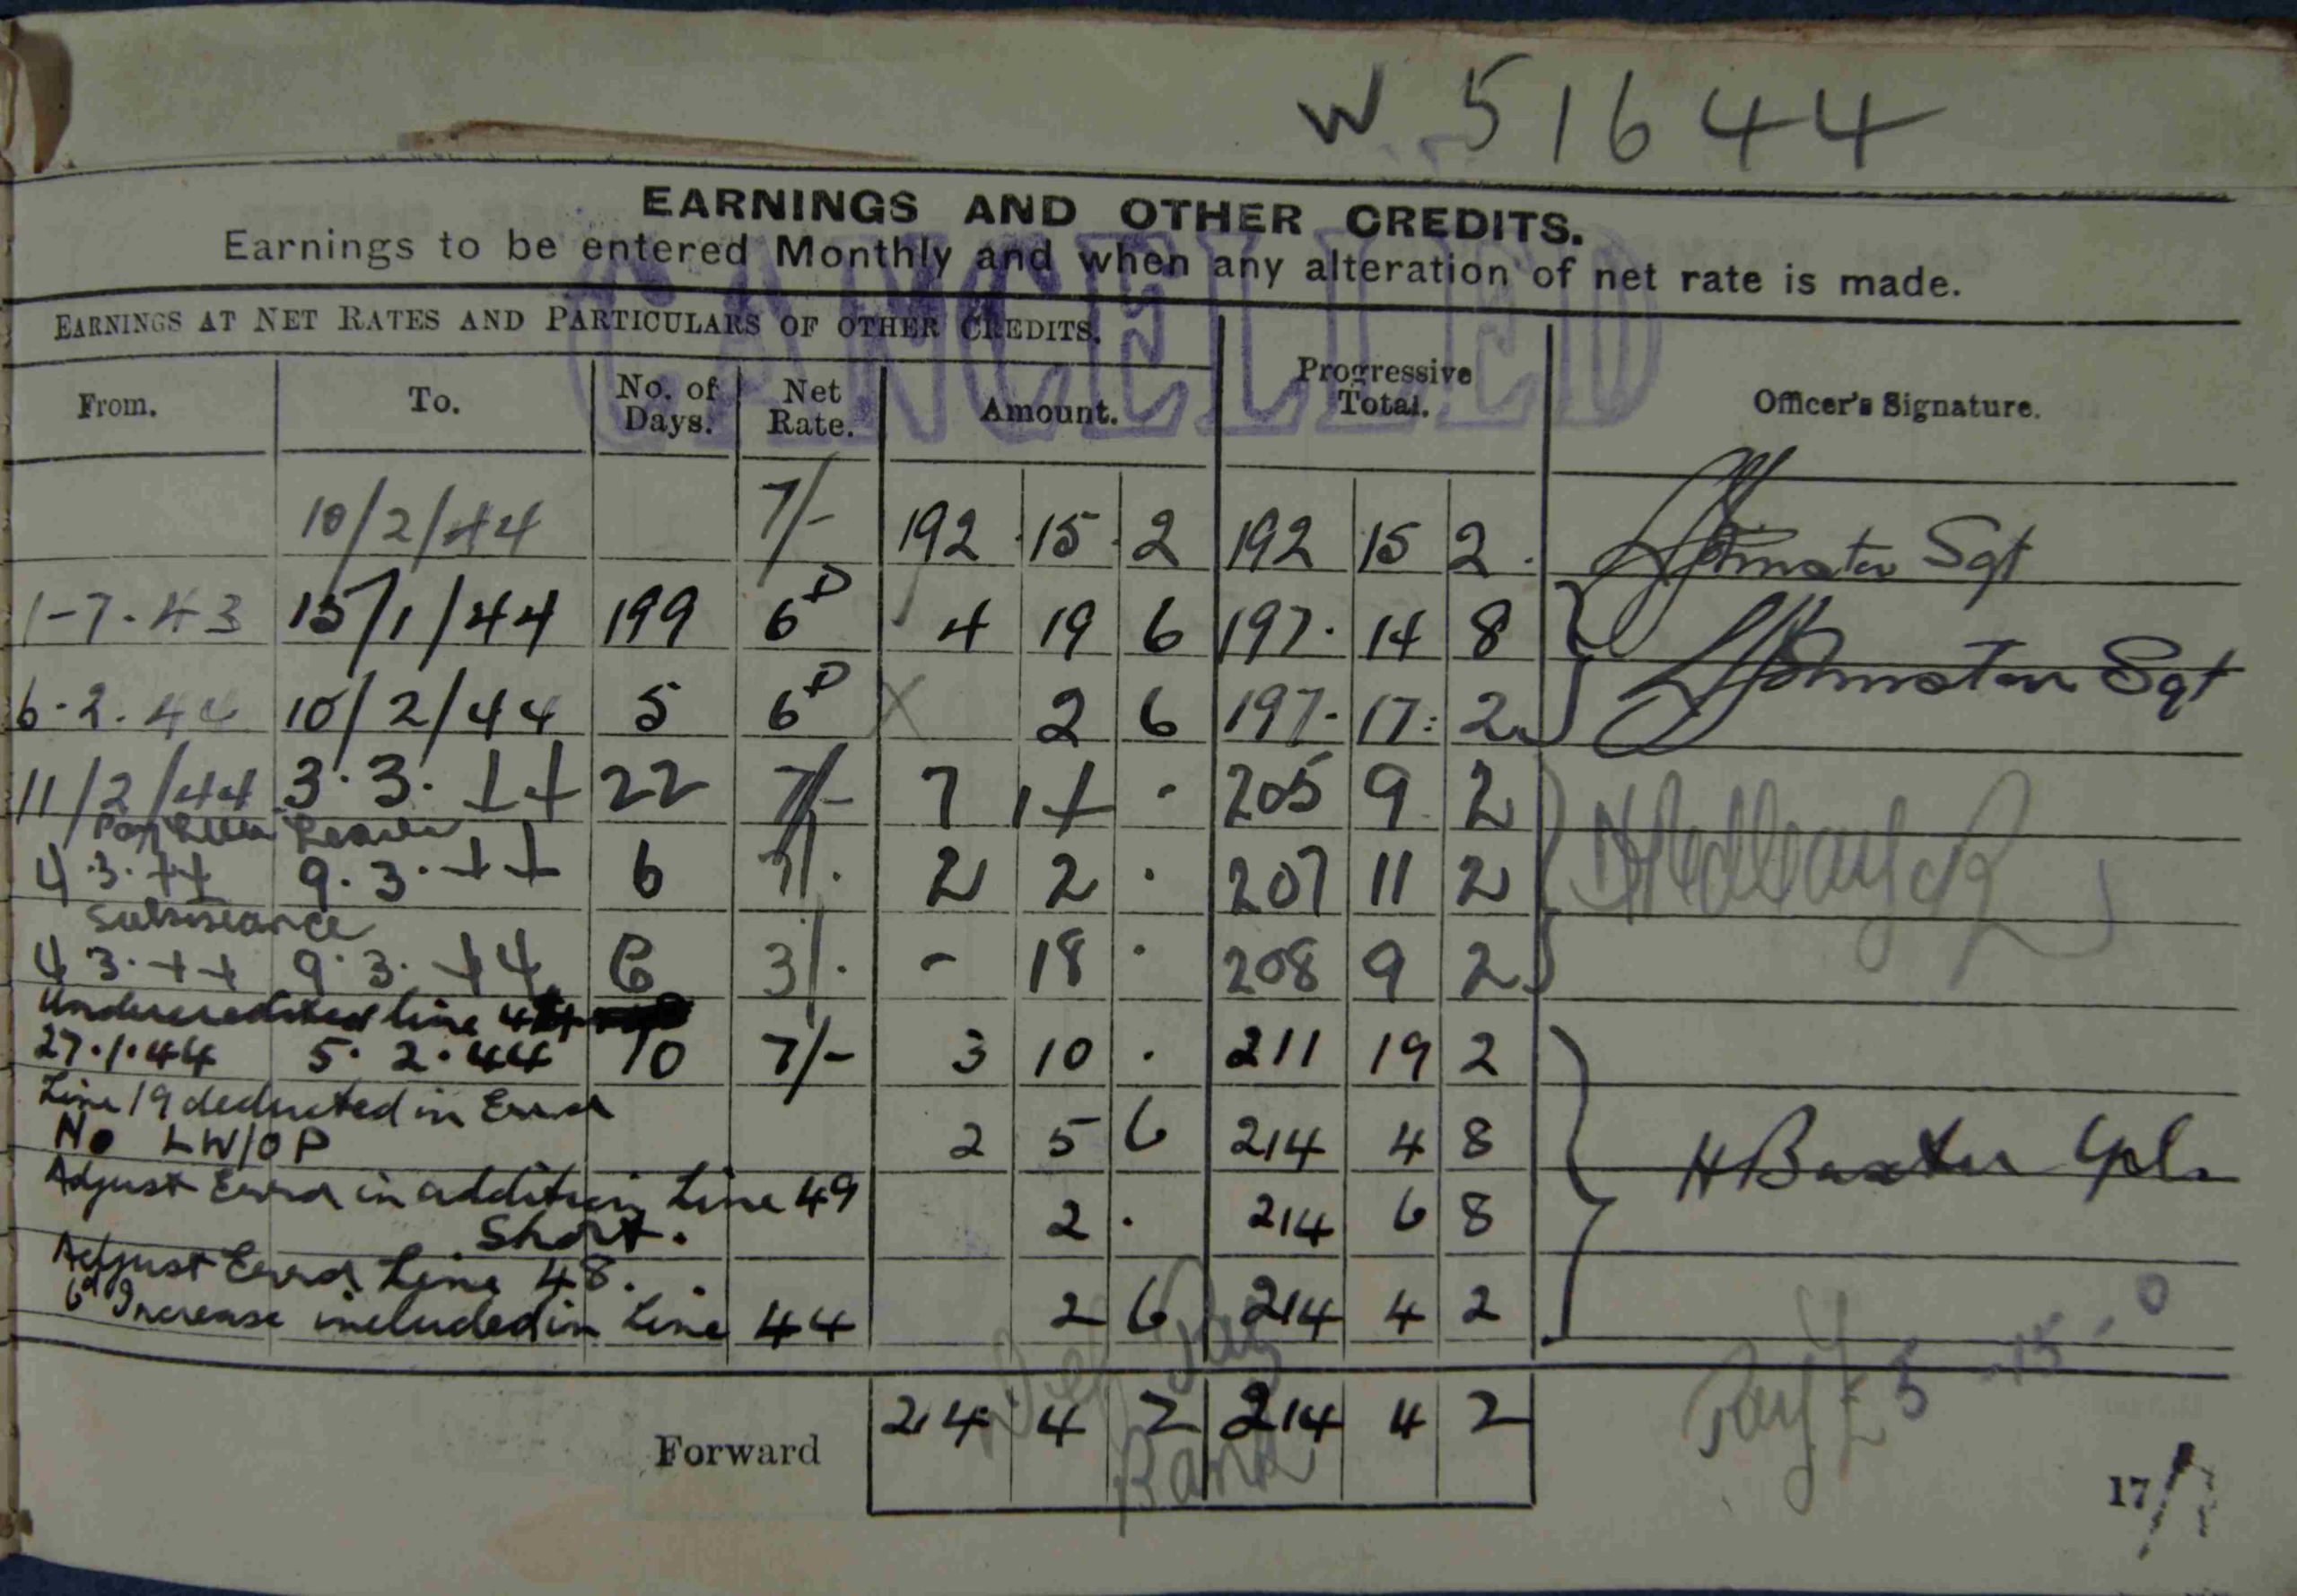 W 51644
EARNINGS AND OTHER CREDITS.
Earnings to be entered Monthly and when any alteration of net rate is made.
CANCELLED
EARNINGS AT NET RATES AND PARTICULARS OF OTHER CREDITS.
From. To. No. of Days. Net Rate. Amount. Progressive Total. Officer's Signature.
10/2/44 7/- 192 15 2 192 15 2 Johnston Sgt
1-7-43 15/1/44 199 6D 4 19 6 197 14 8
6.2.44 10/2/44 5 6D X 2 6 197 17 2 Johnston Sgt
11/2/44 3.3.44 22 7/- 7 14 . 205 9 2
Leave
4.3.44 9.3.44 6 7/. 2 2 . 207 11 2
Subsistance
4 3.44 9.3.44 6 3/. - 18 . 208 9 2
Undercredited line 44
27.1.44 5.2.44 10 7/- 3 10 . 211 19 2
Line 19 deducted in Error
No LW/OP 2 5 6 214 4 8 H Baxter Cpl.
Adjust Error in addition Line 49
Short. 2 . 214 6 8
Adjust Error Line 48.
6d Increase included in Line 44 2 6 214 4 2
Def Pay
Bank
Pay £5-15-0
Forward 214 4 2 214 4 2
17